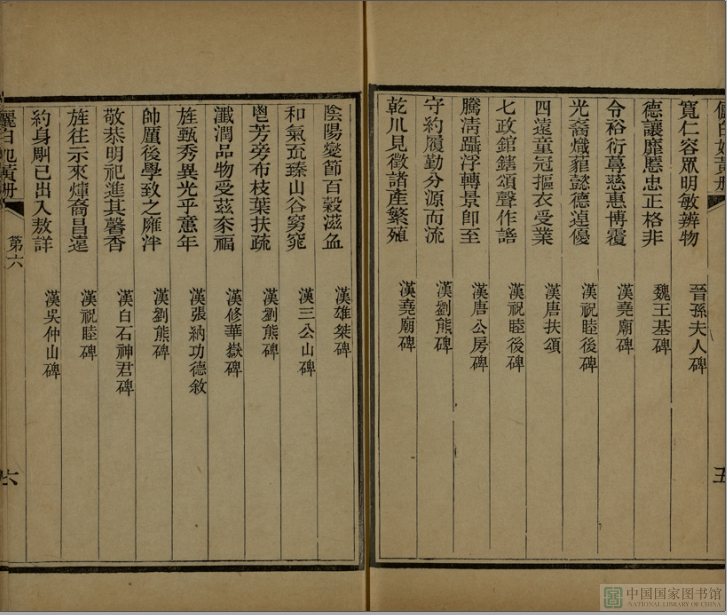 寬仁容眾明敏辨物 晉孫夫人碑
德讓靡慝忠正格非 魏王基碑
令裕衍尊慈惠博覆 漢堯廟碑
光裔熾藿懿德逴優 漢祝睦後碑
四遠童冠摳衣受業 漢唐扶頌
七政鎋鎋頌聲作謠 漢祝睦後碑
騰清躡浮轉景即至 漢唐公房碑
守約履勤分源而流 漢劉熊碑
乾川見徵諸產繁殖 漢堯廟碑
陰陽變節百穀滋 漢雄桀碑
和氣臻山谷窈窕 漢三公山碑
鬯芳旁布枝葉扶疏 漢劉熊碑
瀸潤品物受茲介福 漢修華嶽碑
旌甄秀異光乎意年 漢張納功德敘
帥厲後學致之雍泮 漢劉熊碑
敬恭明祀進其馨香 漢白石神君碑
旌往示來煇裔昌遠 漢祝睦碑
約身馴已出入敖詳 漢吳仲山碑
第六
六
五
中国国家图书馆
NATIONAL LIBRARY OF CHINA